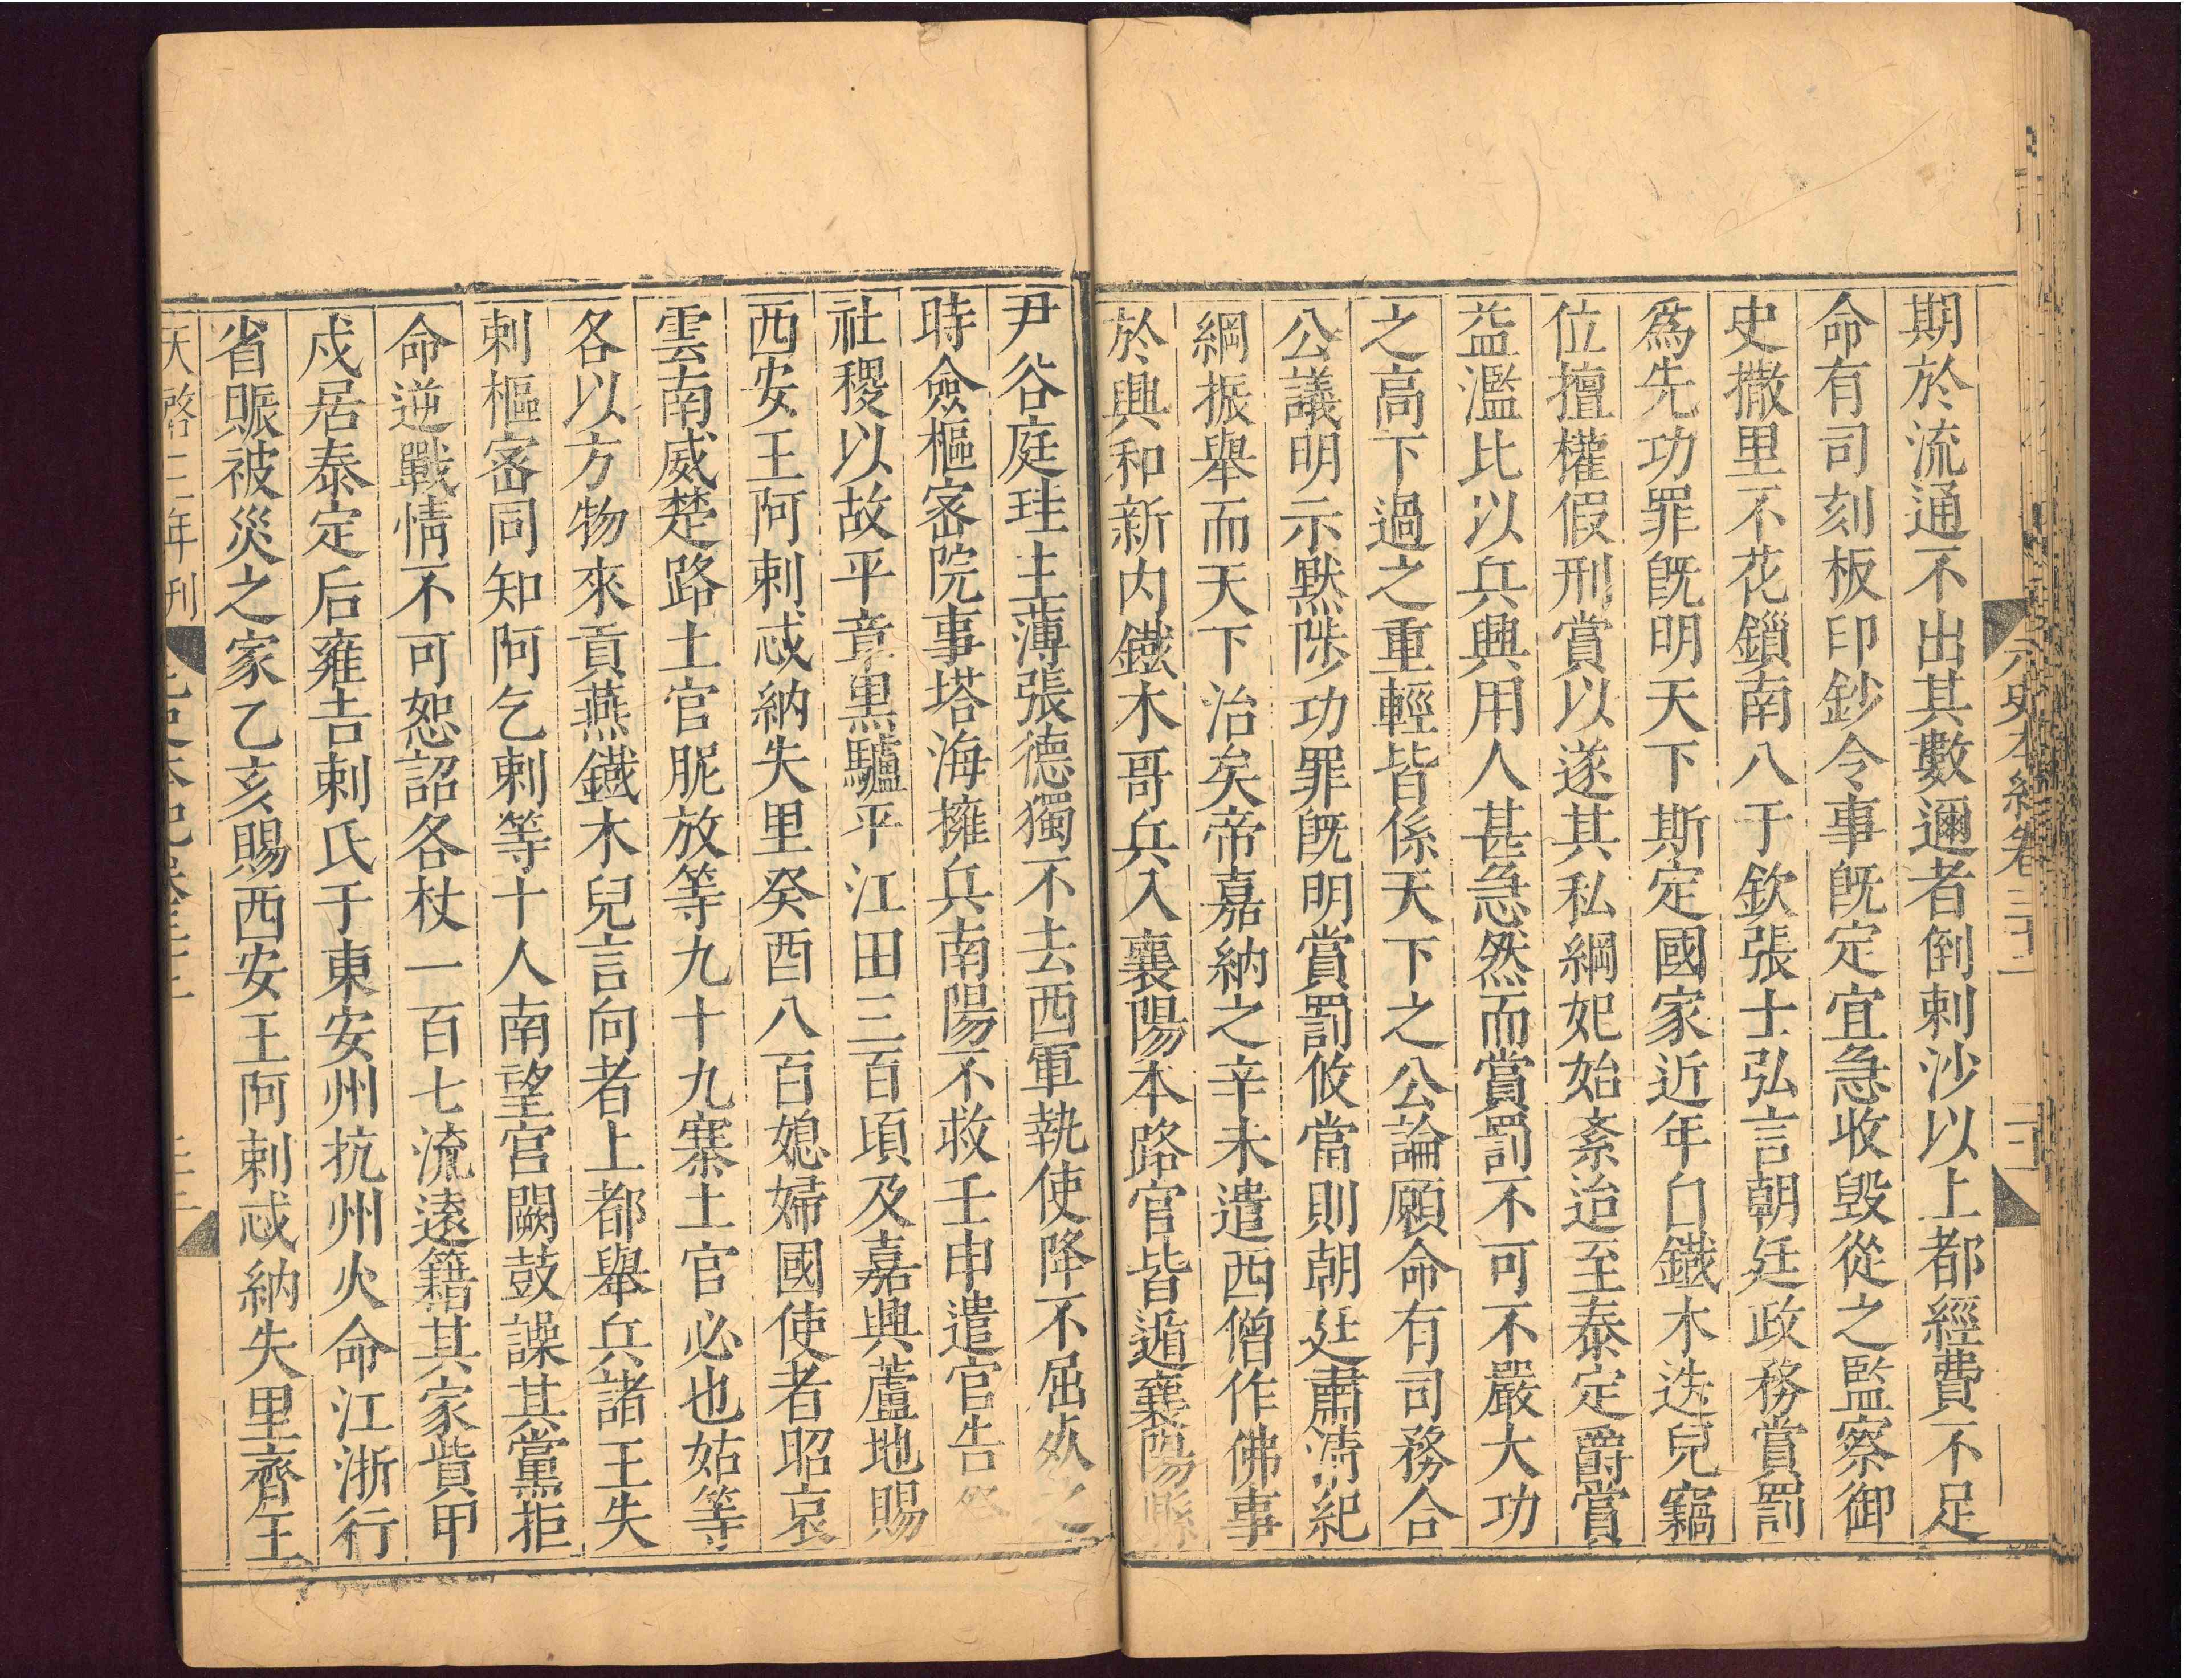 元史本紀卷三十二
期於流通不出其數邇者倒剌沙以上都經費不足
命有司刻板印鈔今事旣定宜急收毀從之監察御
史撒里不花鎖南八于欽張士弘言朝廷政務賞罰
爲先功罪旣明天下斯定國家近年自鐵木迭兒竊
位擅權假刑賞以遂其私綱妃始紊迨至泰定爵賞
益濫比以兵興用人甚急然而賞罰不可不嚴大功
之高下過之重輕皆係天下之公論願命有司務合
公議明示黙陟功罪旣明賞罰攸當則朝廷肅清紀
綱振舉而天下治矣帝嘉納之辛未遣西僧作佛事
於興和新内鐵木哥兵入襄陽本路官皆遁襄陽縣
尹谷庭珪主薄張德獨不去西軍執使降不屈死之
時僉樞宻院事塔海擁兵南陽不救壬申遣官告祭
社稷以故平章黒驢平江田三百頃及嘉興蘆地賜
西安王阿剌忒納失里癸酉八百媳婦國使者昭哀
雲南威楚路土官胒放等九十九寨土官必也姑等
各以方物來貢燕鐵木兒言向者上都舉兵諸王失
剌樞宻同知阿乞剌等十人南望宫闕鼓譟其黨拒
命逆戰情不可恕詔各杖一百七流遠籍其家貲甲
戍居泰定后雍吉剌氏于東安州杭州火命江浙行
省賑被災之家乙亥賜西安王阿剌忒納失里齊王
天啓三年刊